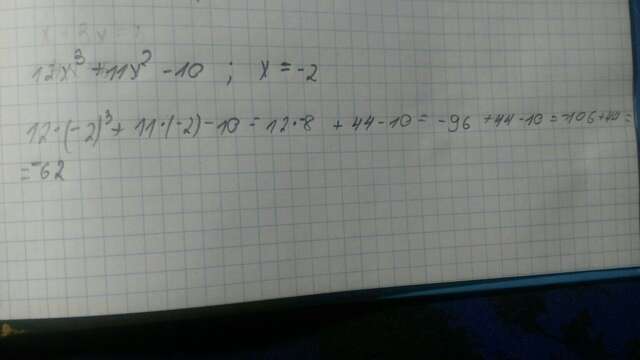 12x³ + 11x² - 10 ; x = -2
12·(-2)³ + 11·(-2) - 10 = 12·-8 + 44 - 10 = -96 + 44 - 10 = -106 + 40 =
= -62